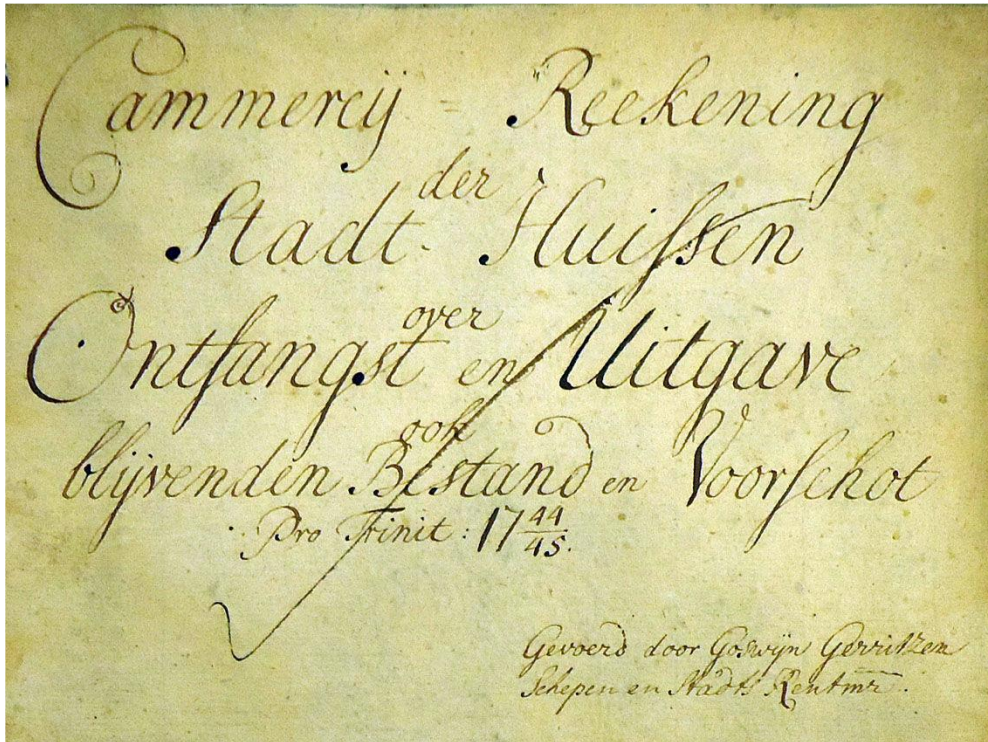 Cammereij = Reekening
der
Stadt Huissen
over
Ontfangst en Uitgave
ook
blijvenden Bestand en Voorschot
Pro Trinit: 17 44/45.
Gevoerd door Goswijn Gerritzen
Schepen en Stadts Rentmr.